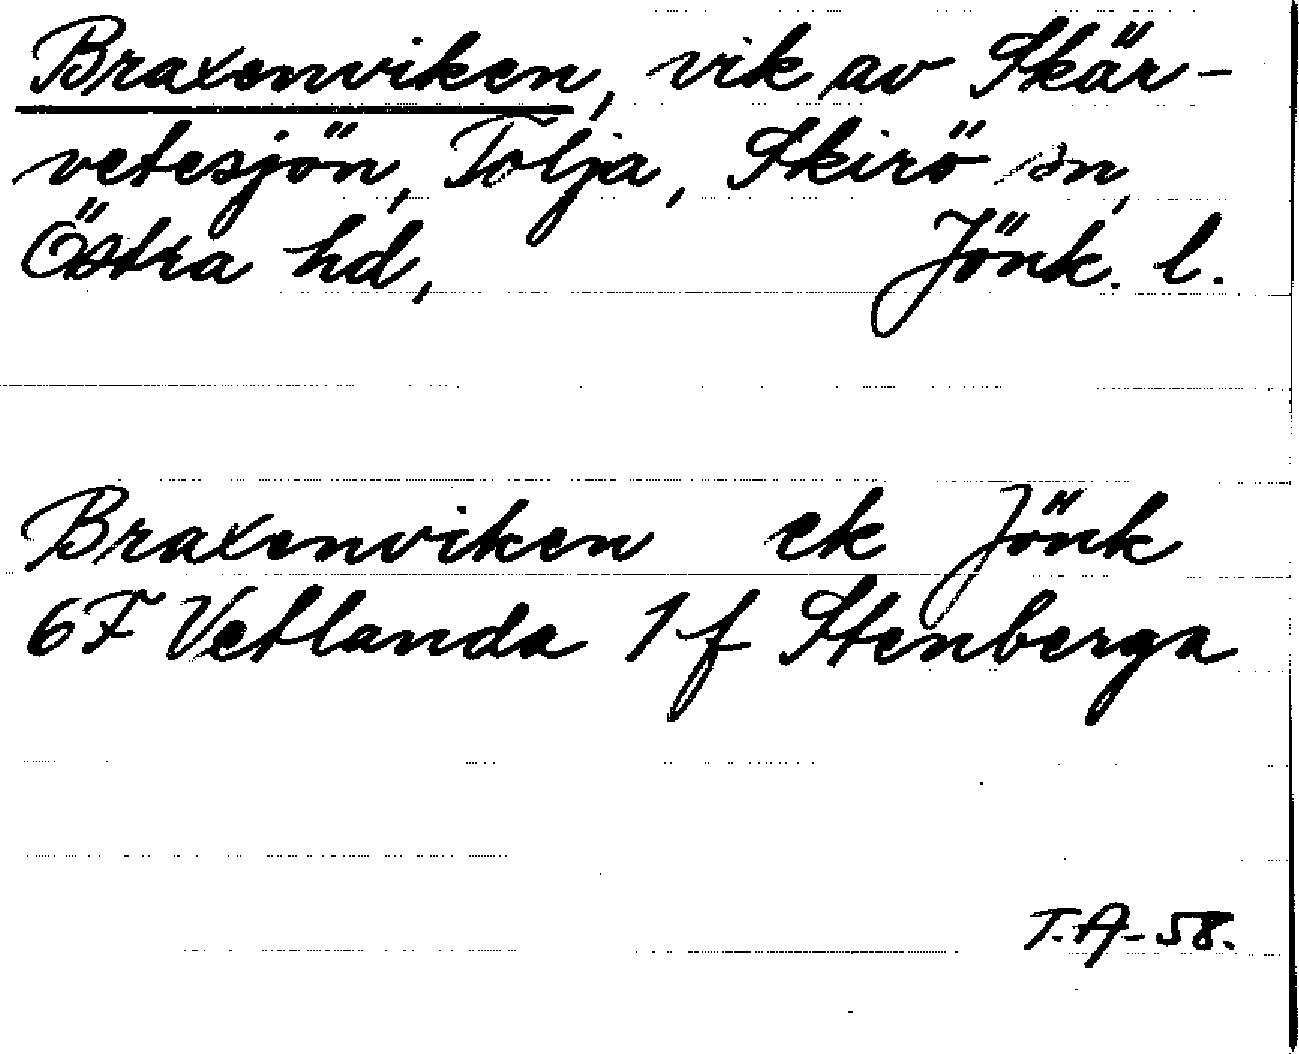 Braxenviken, vik av Skär-
vetesjön, Tolja, Skirö sn,
Östra hd, Jönk. l.
Braxenviken ek Jönk
6F Vetlanda 1 f Stenberga
T.A-58.